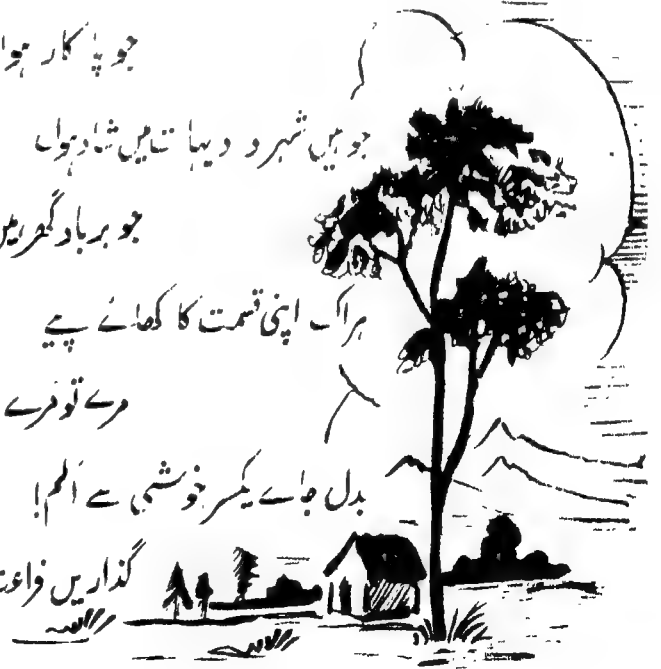 جو کار
جو ہیں شہر و دیہات میں شاد ہوں
جو برباد گھر ہیں
ہر اک اپنی قسمت کا کھائے پیے
مرے تو مرے
بدل جاے یکسر خوشی سے الم!
گذاریں